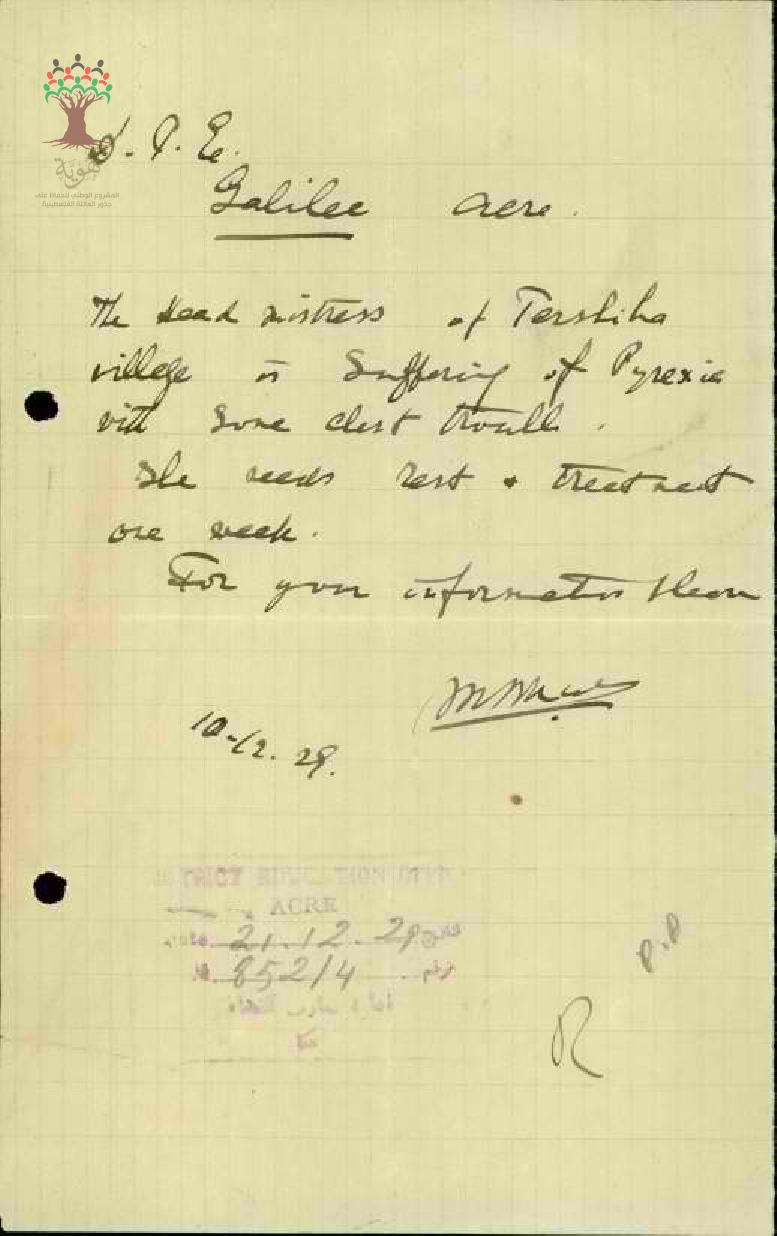 هوية
المشروع الوطني للحفاظ على
جذور العائلة الفلسطينية
D. I. E.
Galilee Acre.
The Head mistress of Tershiha
village is Suffering of Pyrexia
with Some chest trouble.
She needs rest + treatment
one week.
For your information please
10-12.29.
DISTRICT EDUCATION OFFI
ACRE
Date 21.12.29 التاريخ
No. 852/4 رقم
عكا
P.P
R